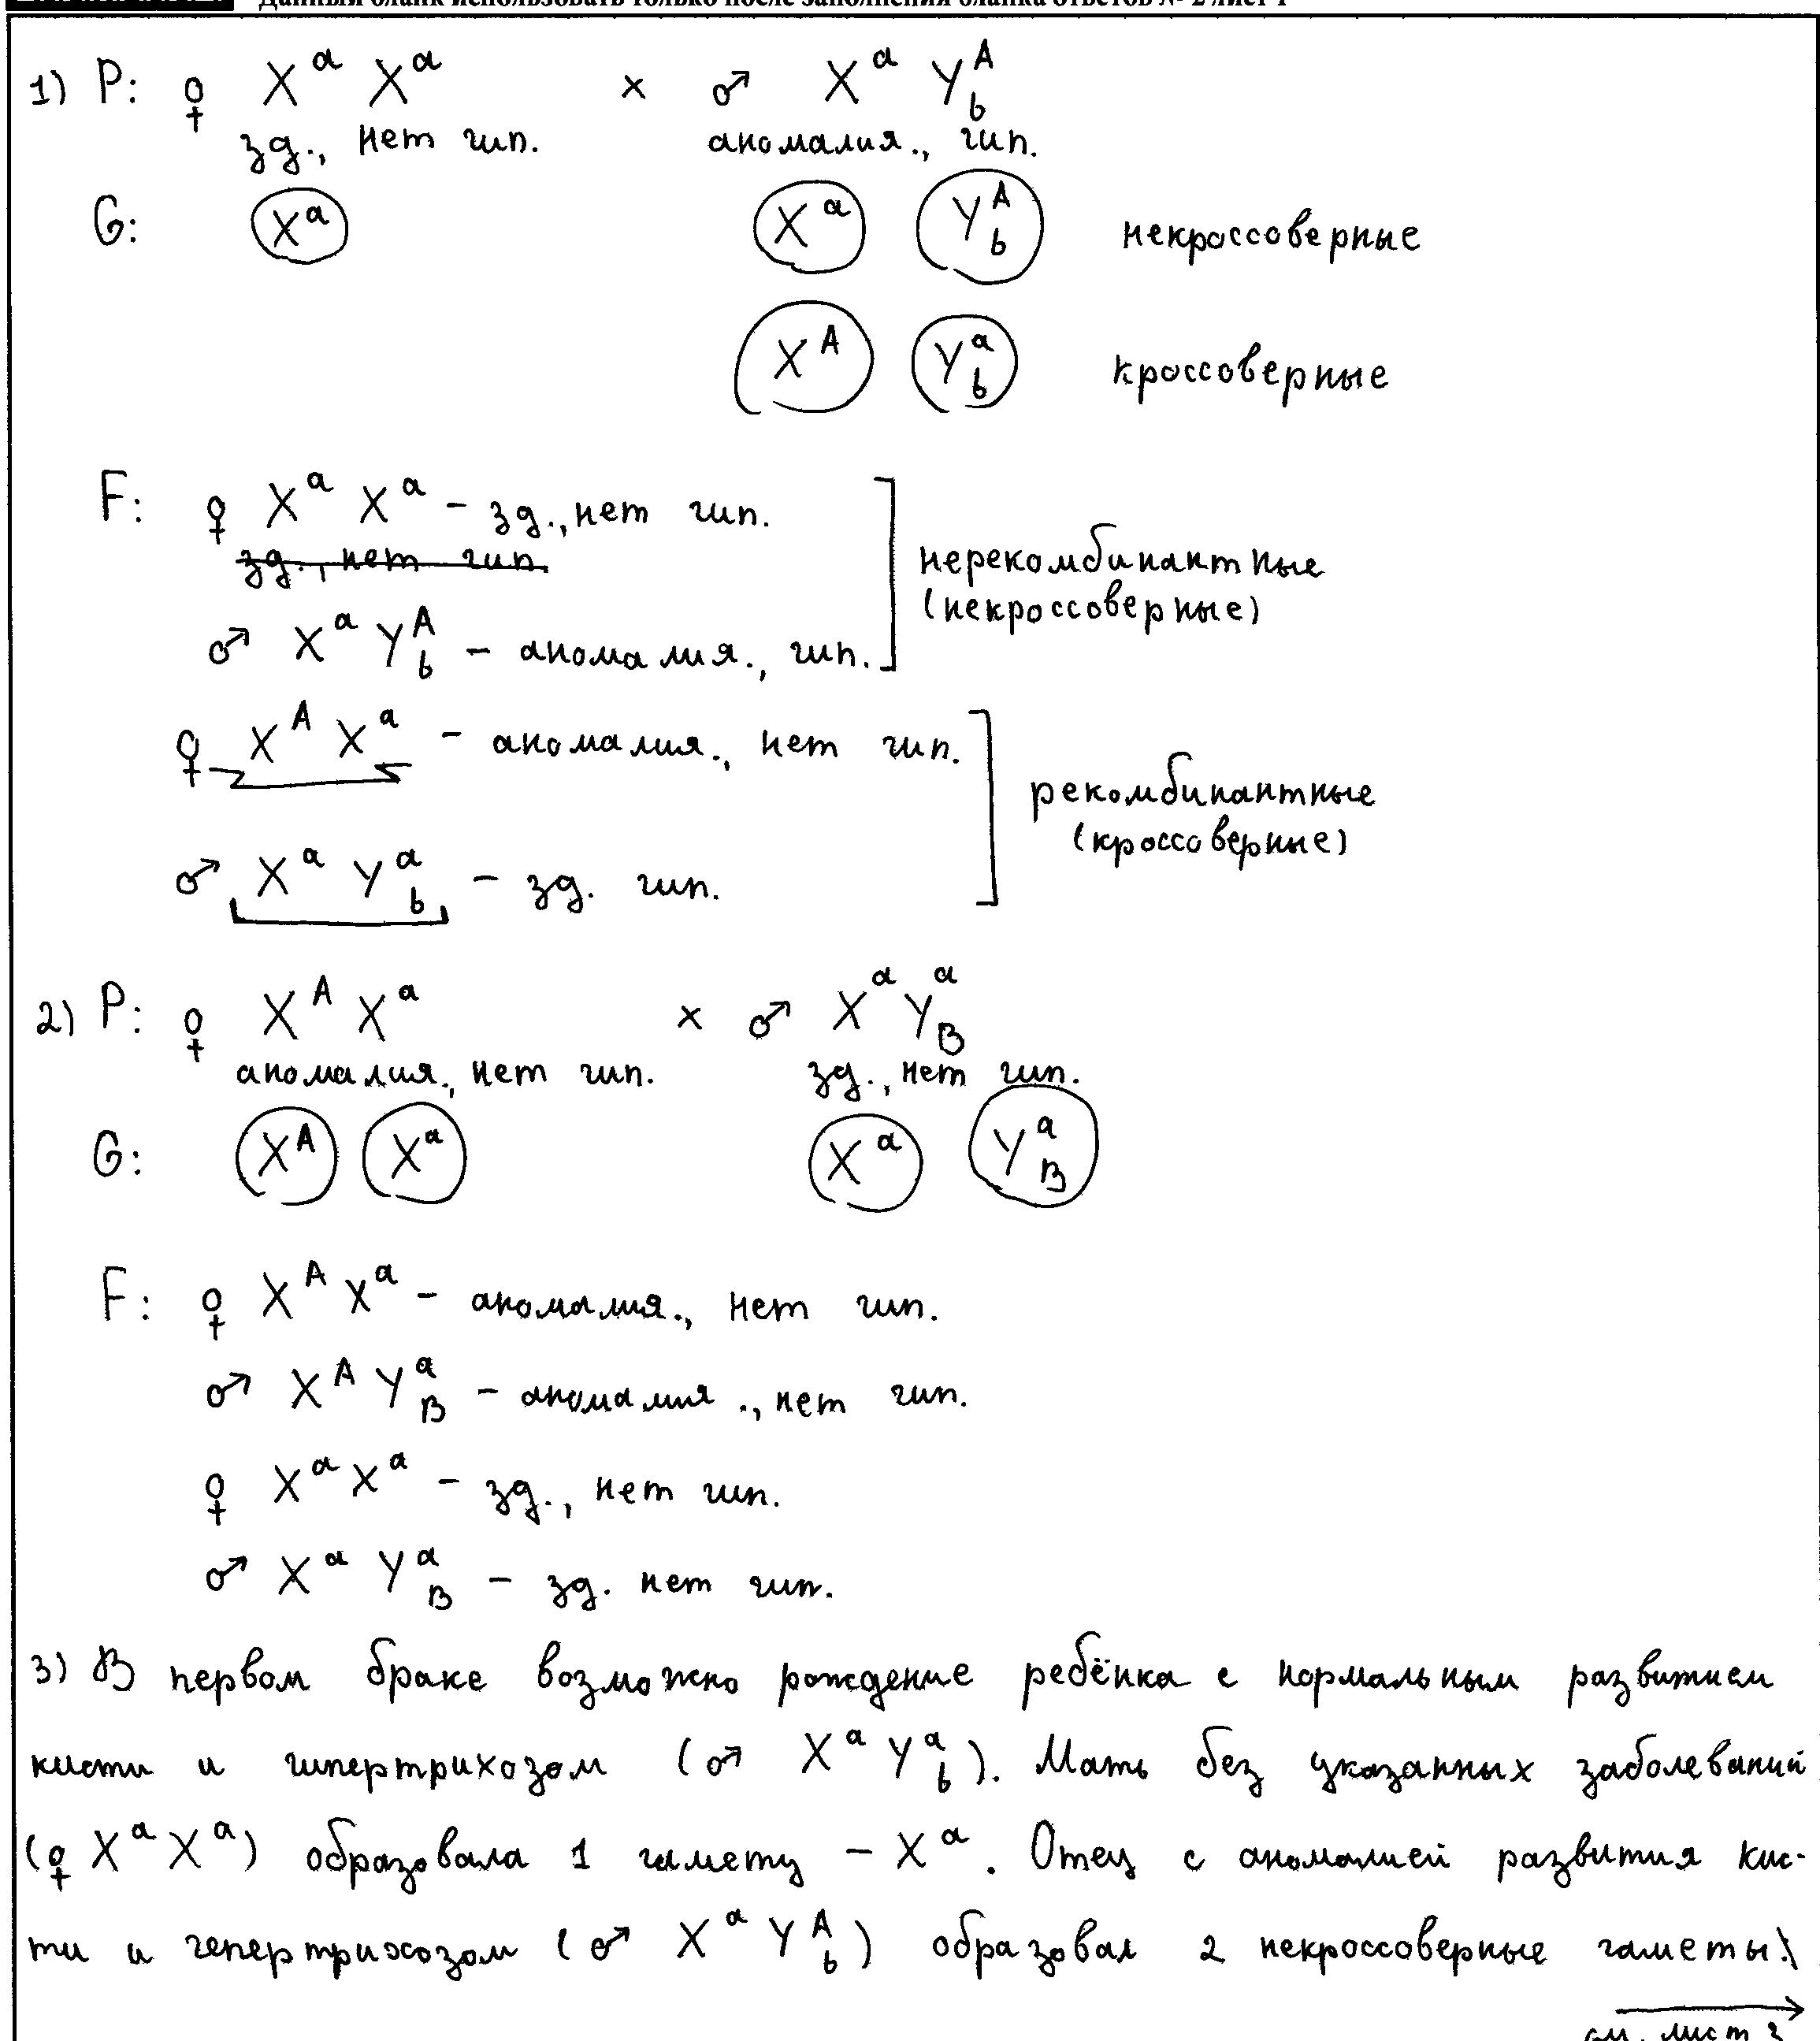 Данный бланк использовать только после заполнения бланка ответов № 2 лист 1
1) P: ♀ X^a X^a × ♂ X^a Y^A_b
зд., нет гип. аномалия., гип.
G: X^a X^a Y^A_b некроссоверные
X^A Y^a_b кроссоверные
F: ♀ X^a X^a – зд., нет гип.
зд., нет гип.
нерекомбинантные
(некроссоверные)
♂ X^a Y^A_b – аномалия., гип.
♀ X^A X^a – аномалия., нет гип.
рекомбинантные
(кроссоверные)
♂ X^a Y^a_b – зд. гип.
2) P: ♀ X^A X^a × ♂ X^a Y^a_B
аномалия., нет гип. зд., нет гип.
G: X^A X^a X^a Y^a_B
F: ♀ X^A X^a – аномалия., нет гип.
♂ X^A Y^a_B – аномалия ., нет гип.
♀ X^a X^a – зд., нет гип.
♂ X^a Y^a_B – зд. нет гип.
3) В первом браке возможно рождение ребёнка с нормальным развитием
кисти и гипертрихозом (♂ X^a Y^a_b). Мать без указанных заболеваний
(♀ X^a X^a) образовала 1 гамету – X^a. Отец с аномалией развития кис-
ти и гепертрихозом (♂ X^a Y^A_b) образовал 2 некроссоверные гаметы\
см. лист